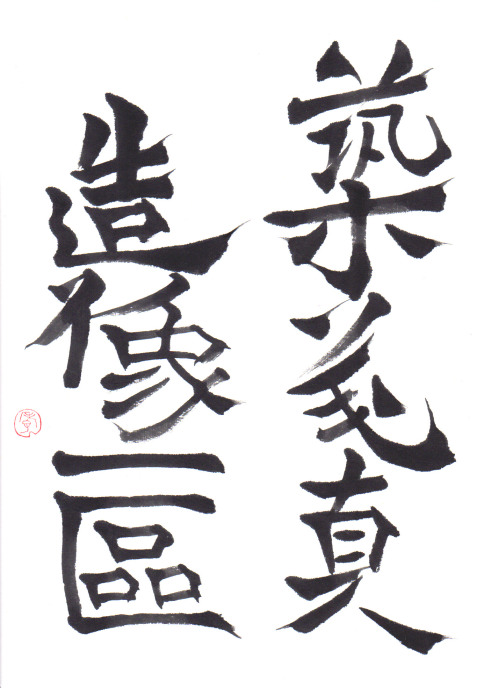 築真
造像一區